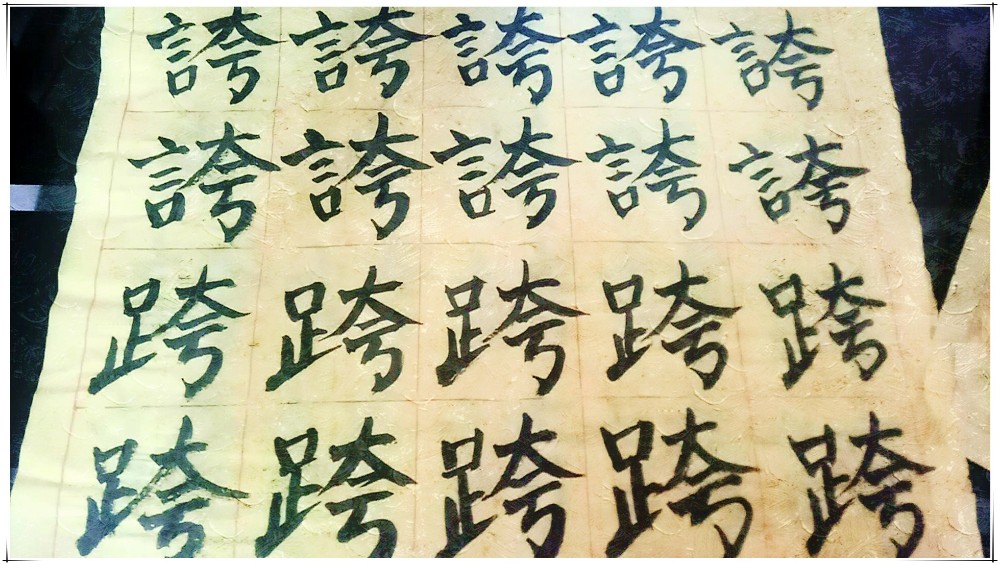 誇誇誇誇誇
誇誇誇誇誇
跨跨跨跨跨
跨跨跨跨跨